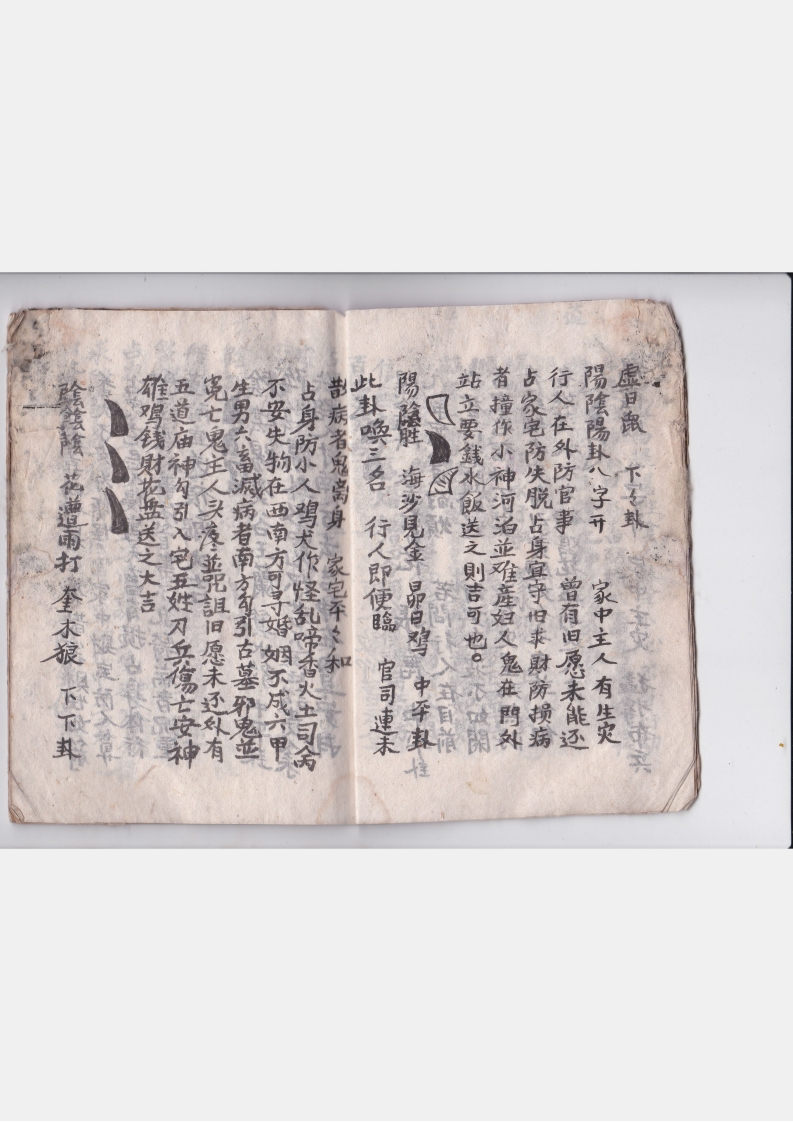 虚日鼠　下々卦
陽陰陽卦八字开　家中主人有生灾
行人在外防官事　曾有旧愿未能还
占家宅防失脱占身宜守旧求財防损病
者撞作小神河泊並难産妇人鬼在門外
站立要銭水飯送之則吉可也。
陽陰胜　海沙見金　昴日鸡　中平卦
此卦喚三名　行人即便臨　官司連未
散病者鬼离身　家宅平々和
占身防小人鸡犬作怪乱啼香火土司
不安失物在西南方可寻婚姻不成六甲
生男六畜滅病者南方勾引古墓邪鬼並
冤亡鬼主人头疼並咒詛旧愿未还外有
五道庙神勾引入宅五姓刀兵傷亡安神
雄鸡銭財花盘送之大吉
陰陰陰　花遭雨打　奎木狼　下下卦